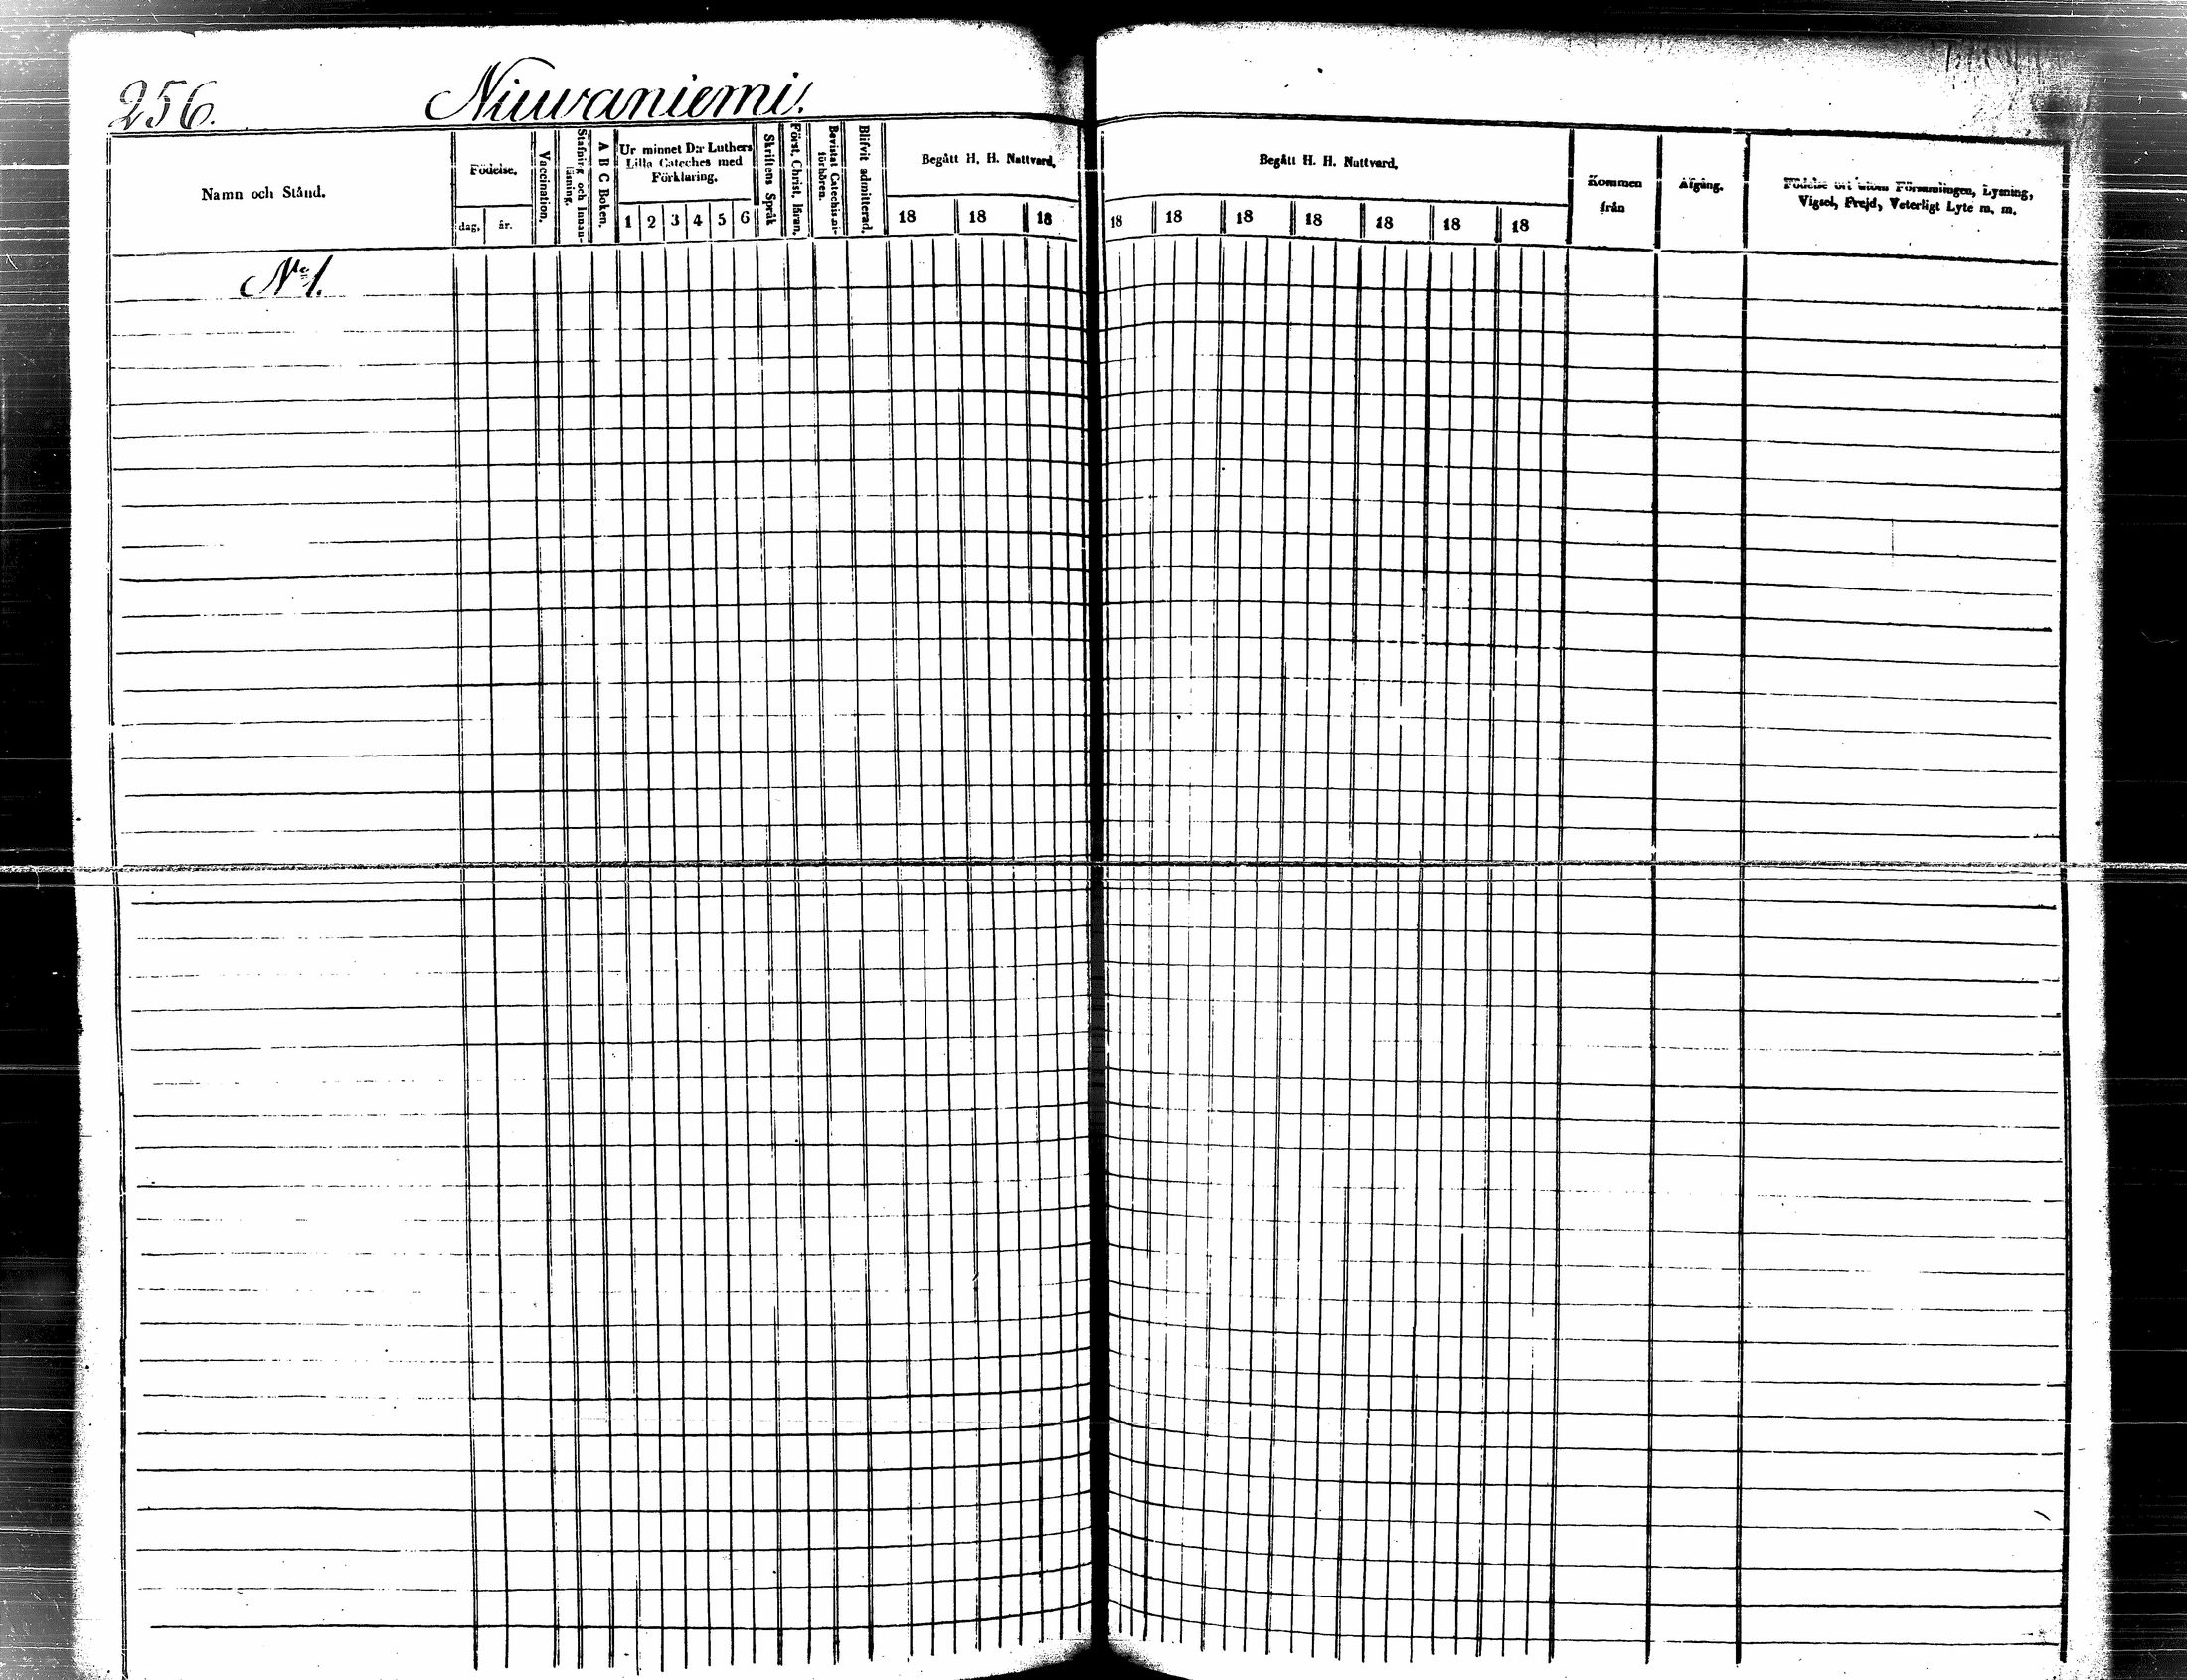 256. Niuvaniemi.
Namn och Stånd.
Födelse.
dag. år.
Vaccination.
Stafning och Innan-
läsning.
A B C Boken.
Ur minnet D:r Luthers
Lilla Cateches med
Förklaring.
1 2 3 4 5 6
Skriftens Språk
Först. Christ. läran.
Bevistat Catechis.mi-
förhören.
Blifvit admitterad.
Begått H. H. Nattvard.
18 18 18
Begått H. H. Nattvard.
18 18 18 18 18 18 18
Kommen
från
Afgång.
Födelse ort utom Församlingen, Lysning,
Vigsel, Frejd, Veterligt Lyte m. m.
No 1.